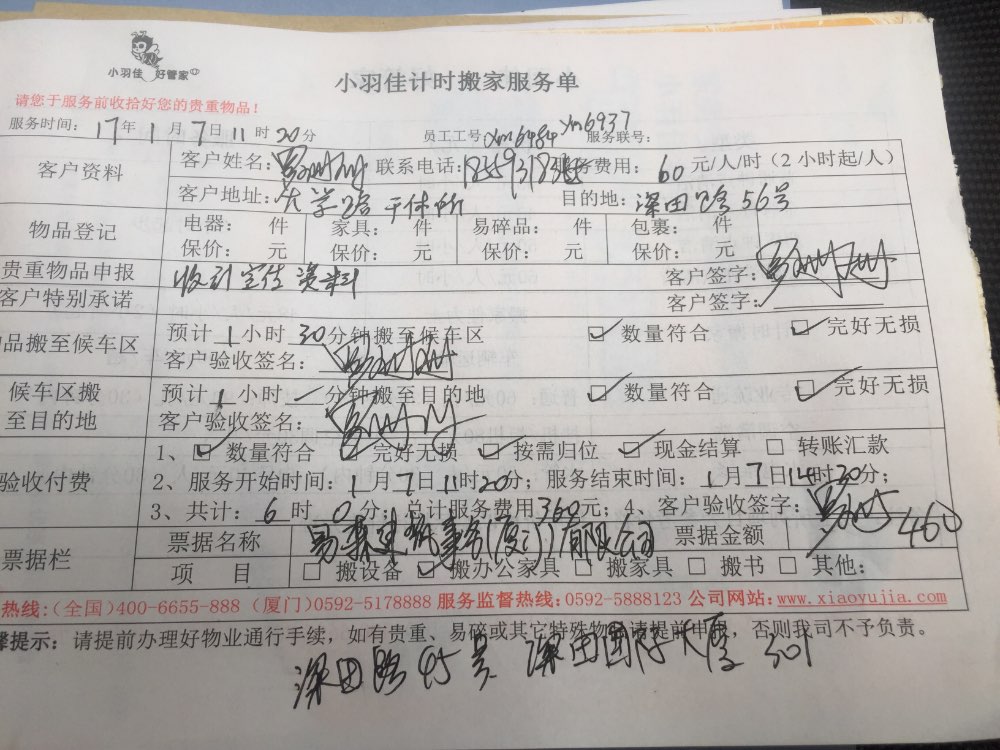 小羽佳 好管家
小羽佳计时搬家服务单
请您于服务前收拾好您的贵重物品！
服务时间：17年1月7日11时20分 员工工号：xm6484 xm6937 服务联号：
客户资料 客户姓名： 联系电话： 务费用：60元/人/时（2小时起/人）
客户地址：大学路干休所 目的地：深田路56号
物品登记 电器： 件 家具： 件 易碎品： 件 包裹： 件
保价： 元 保价： 元 保价： 元 保价： 元
贵重物品申报 收到定性资料 客户签字：
客户特别承诺 客户签字：
品搬至候车区 预计1小时30分钟搬至候车区 数量符合 完好无损
客户验收签名：
候车区搬至目的地 预计1小时 分钟搬至目的地 数量符合 完好无损
客户验收签名：
验收付费 1、 数量符合 完好无损 按需归位 现金结算 转账汇款
2、服务开始时间：1月7日11时20分；服务结束时间：1月7日14时20分；
3、共计：6时0分；总计服务费用360元；4、客户验收签字： 460
票据栏 票据名称 (厦门)有限公司 票据金额
项 目 搬设备 搬办公家具 搬家具 搬书 其他：
热线：（全国）400-6655-888（厦门）0592-5178888 服务监督热线：0592-5888123 公司网站：www.xiaoyujia.com
馨提示：请提前办理好物业通行手续，如有贵重、易碎或其它特殊物 请提前申 ，否则我司不予负责。
深田路45号 深田国际大厦 301